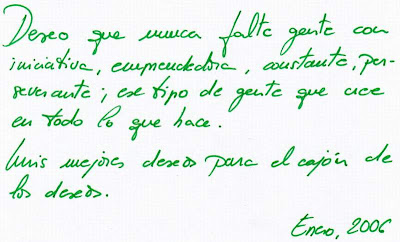 Deseo que nunca falte gente con
iniciativa, emprendedora, constante, per-
severante; ese tipo de gente que cree
en todo lo que hace.
Mis mejores deseos para el cajón de
los deseos.
Enero, 2006